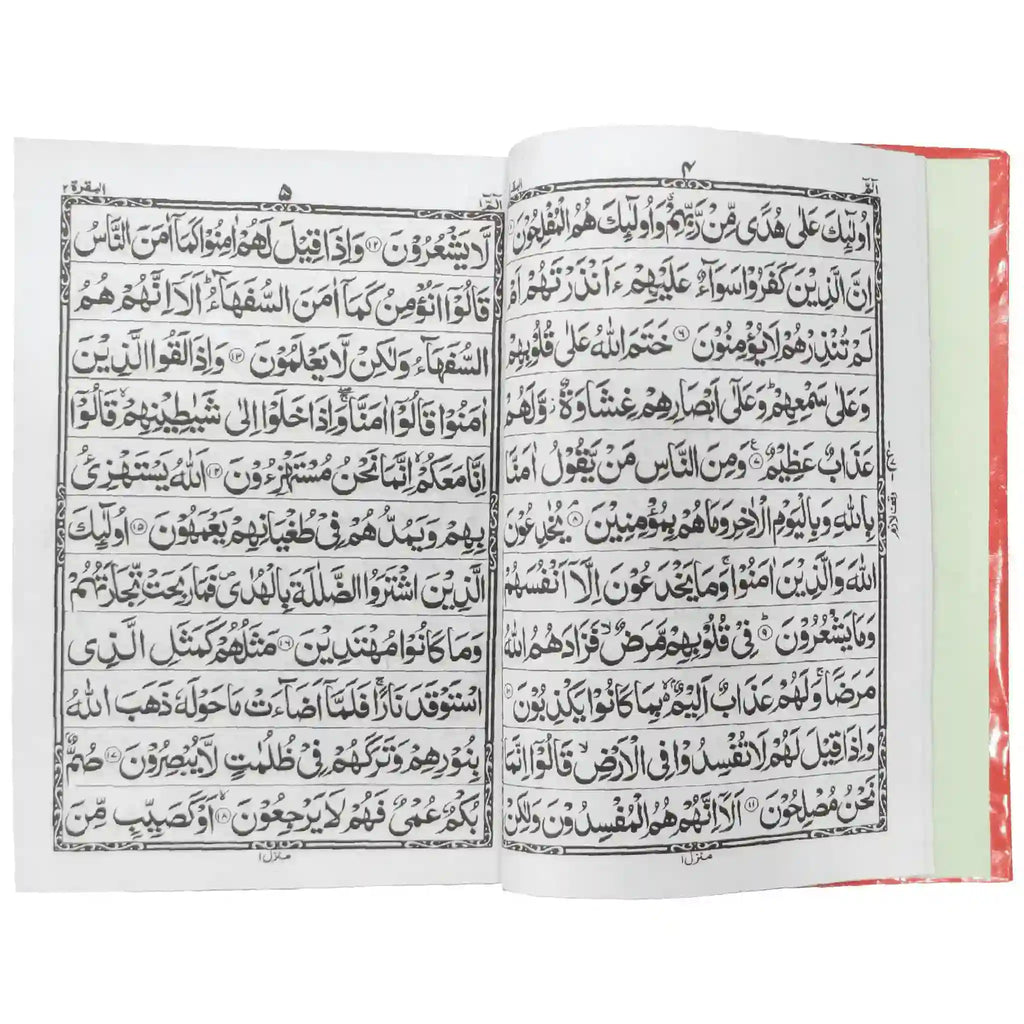 الٓمّٓ
۴
اُولٰٓئِكَ عَلٰى هُدًى مِّنْ رَّبِّهِمْ وَاُولٰٓئِكَ هُمُ الْمُفْلِحُوْنَ
اِنَّ الَّذِيْنَ كَفَرُوْا سَوَآءٌ عَلَيْهِمْ ءَاَنْذَرْتَهُمْ اَمْ
لَمْ تُنْذِرْهُمْ لَا يُؤْمِنُوْنَ ۶ خَتَمَ اللّٰهُ عَلٰى قُلُوْبِهِمْ
وَعَلٰى سَمْعِهِمْ ؕ وَعَلٰٓى اَبْصَارِهِمْ غِشَاوَةٌ ؗ وَّلَهُمْ
عَذَابٌ عَظِيْمٌ ۷ وَمِنَ النَّاسِ مَنْ يَّقُوْلُ اٰمَنَّا
بِاللّٰهِ وَبِالْيَوْمِ الْاٰخِرِ وَمَا هُمْ بِمُؤْمِنِيْنَ ۸ يُخٰدِعُوْنَ
اللّٰهَ وَالَّذِيْنَ اٰمَنُوْا ۚ وَمَا يَخْدَعُوْنَ اِلَّاۤ اَنْفُسَهُمْ
وَمَا يَشْعُرُوْنَ ۹ فِيْ قُلُوْبِهِمْ مَّرَضٌ ۙ فَزَادَهُمُ اللّٰهُ
مَرَضًا ۚ وَلَهُمْ عَذَابٌ اَلِيْمٌۢ ۙ بِمَا كَانُوْا يَكْذِبُوْنَ ۱۰
وَاِذَا قِيْلَ لَهُمْ لَا تُفْسِدُوْا فِي الْاَرْضِ ۙ قَالُوْٓا اِنَّمَا
نَحْنُ مُصْلِحُوْنَ ۱۱ اَلَآ اِنَّهُمْ هُمُ الْمُفْسِدُوْنَ وَلٰكِنْ
منزل ۱
الٓمّٓ
۵
البقرة ۲
لَّا يَشْعُرُوْنَ ۱۲ وَاِذَا قِيْلَ لَهُمْ اٰمِنُوْا كَمَآ اٰمَنَ النَّاسُ
قَالُوْٓا اَنُؤْمِنُ كَمَآ اٰمَنَ السُّفَهَآءُ ؕ اَلَآ اِنَّهُمْ هُمُ
السُّفَهَآءُ وَلٰكِنْ لَّا يَعْلَمُوْنَ ۱۳ وَاِذَا لَقُوا الَّذِيْنَ
اٰمَنُوْا قَالُوْٓا اٰمَنَّا ۖۚ وَاِذَا خَلَوْا اِلٰى شَيٰطِيْنِهِمْ ۙ قَالُوْٓا
اِنَّا مَعَكُمْ ۙ اِنَّمَا نَحْنُ مُسْتَهْزِءُوْنَ ۱۴ اَللّٰهُ يَسْتَهْزِئُ
بِهِمْ وَيَمُدُّهُمْ فِيْ طُغْيَانِهِمْ يَعْمَهُوْنَ ۱۵ اُولٰٓئِكَ
الَّذِيْنَ اشْتَرَوُا الضَّلٰلَةَ بِالْهُدٰى ۪ فَمَا رَبِحَتْ تِّجَارَتُهُمْ
وَمَا كَانُوْا مُهْتَدِيْنَ ۱۶ مَثَلُهُمْ كَمَثَلِ الَّذِى
اسْتَوْقَدَ نَارًا ۚ فَلَمَّآ اَضَآءَتْ مَا حَوْلَهٗ ذَهَبَ اللّٰهُ
بِنُوْرِهِمْ وَتَرَكَهُمْ فِيْ ظُلُمٰتٍ لَّا يُبْصِرُوْنَ ۱۷ صُمٌّۢ
بُكْمٌ عُمْيٌ فَهُمْ لَا يَرْجِعُوْنَ ۱۸ ۙ اَوْ كَصَيِّبٍ مِّنَ
منزل ۱